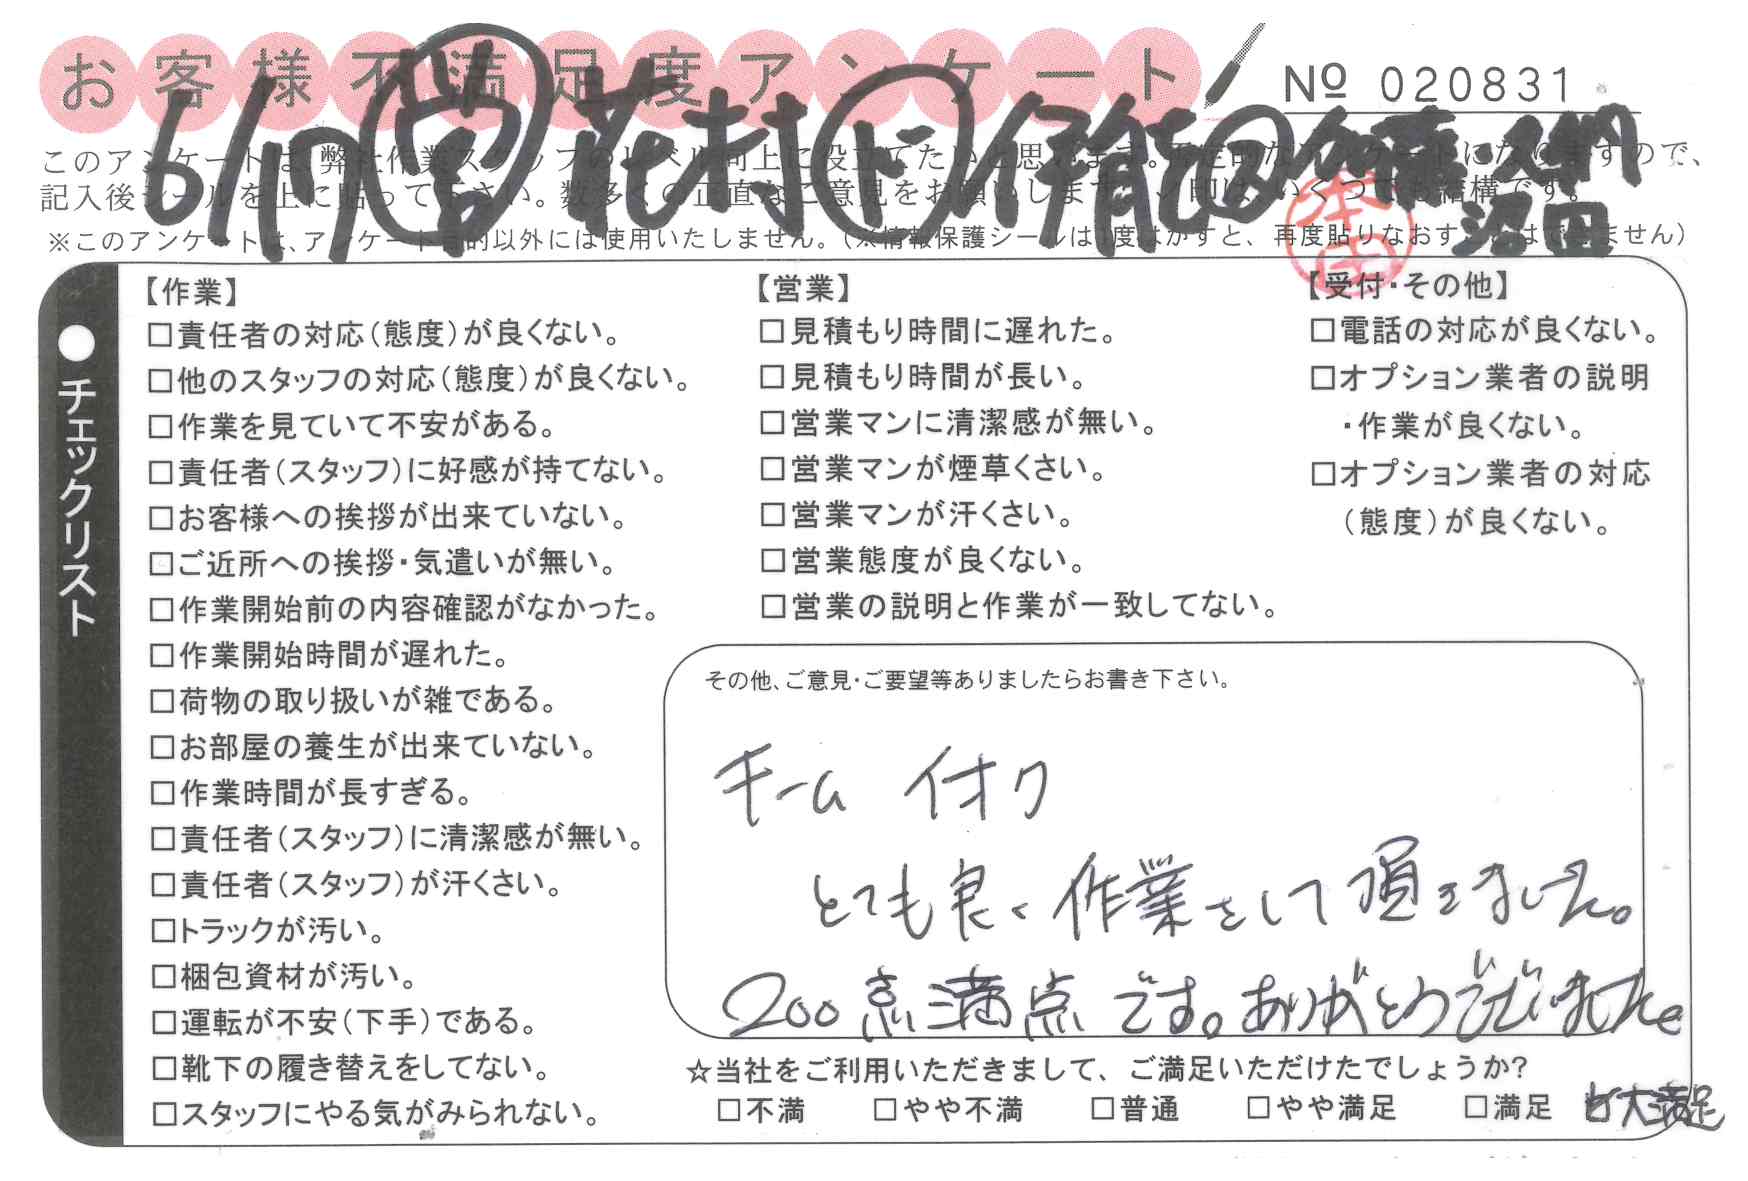 お客様不満足度アンケート
№ 020831
6/17 営 花村 ド 伊能 加藤
沼田
本田
※このアンケートは、アンケート目的以外には使用いたしません。(※情報保護シールは1度はがすと、再度貼りなおすことはできません)
チェックリスト
【作業】
□責任者の対応(態度)が良くない。
□他のスタッフの対応(態度)が良くない。
□作業を見ていて不安がある。
□責任者(スタッフ)に好感が持てない。
□お客様への挨拶が出来ていない。
□ご近所への挨拶・気遣いが無い。
□作業開始前の内容確認がなかった。
□作業開始時間が遅れた。
□荷物の取り扱いが雑である。
□お部屋の養生が出来ていない。
□作業時間が長すぎる。
□責任者(スタッフ)に清潔感が無い。
□責任者(スタッフ)が汗くさい。
□トラックが汚い。
□梱包資材が汚い。
□運転が不安(下手)である。
□靴下の履き替えをしてない。
□スタッフにやる気がみられない。
【営業】
□見積もり時間に遅れた。
□見積もり時間が長い。
□営業マンに清潔感が無い。
□営業マンが煙草くさい。
□営業マンが汗くさい。
□営業態度が良くない。
□営業の説明と作業が一致してない。
【受付・その他】
□電話の対応が良くない。
□オプション業者の説明
・作業が良くない。
□オプション業者の対応
(態度)が良くない。
その他、ご意見・ご要望等ありましたらお書き下さい。
チーム イオク
とても良く作業をして頂きました。
200点満点です。ありがとうございました。
☆当社をご利用いただきまして、ご満足いただけたでしょうか?
□不満 □やや不満 □普通 □やや満足 □満足 □大満足